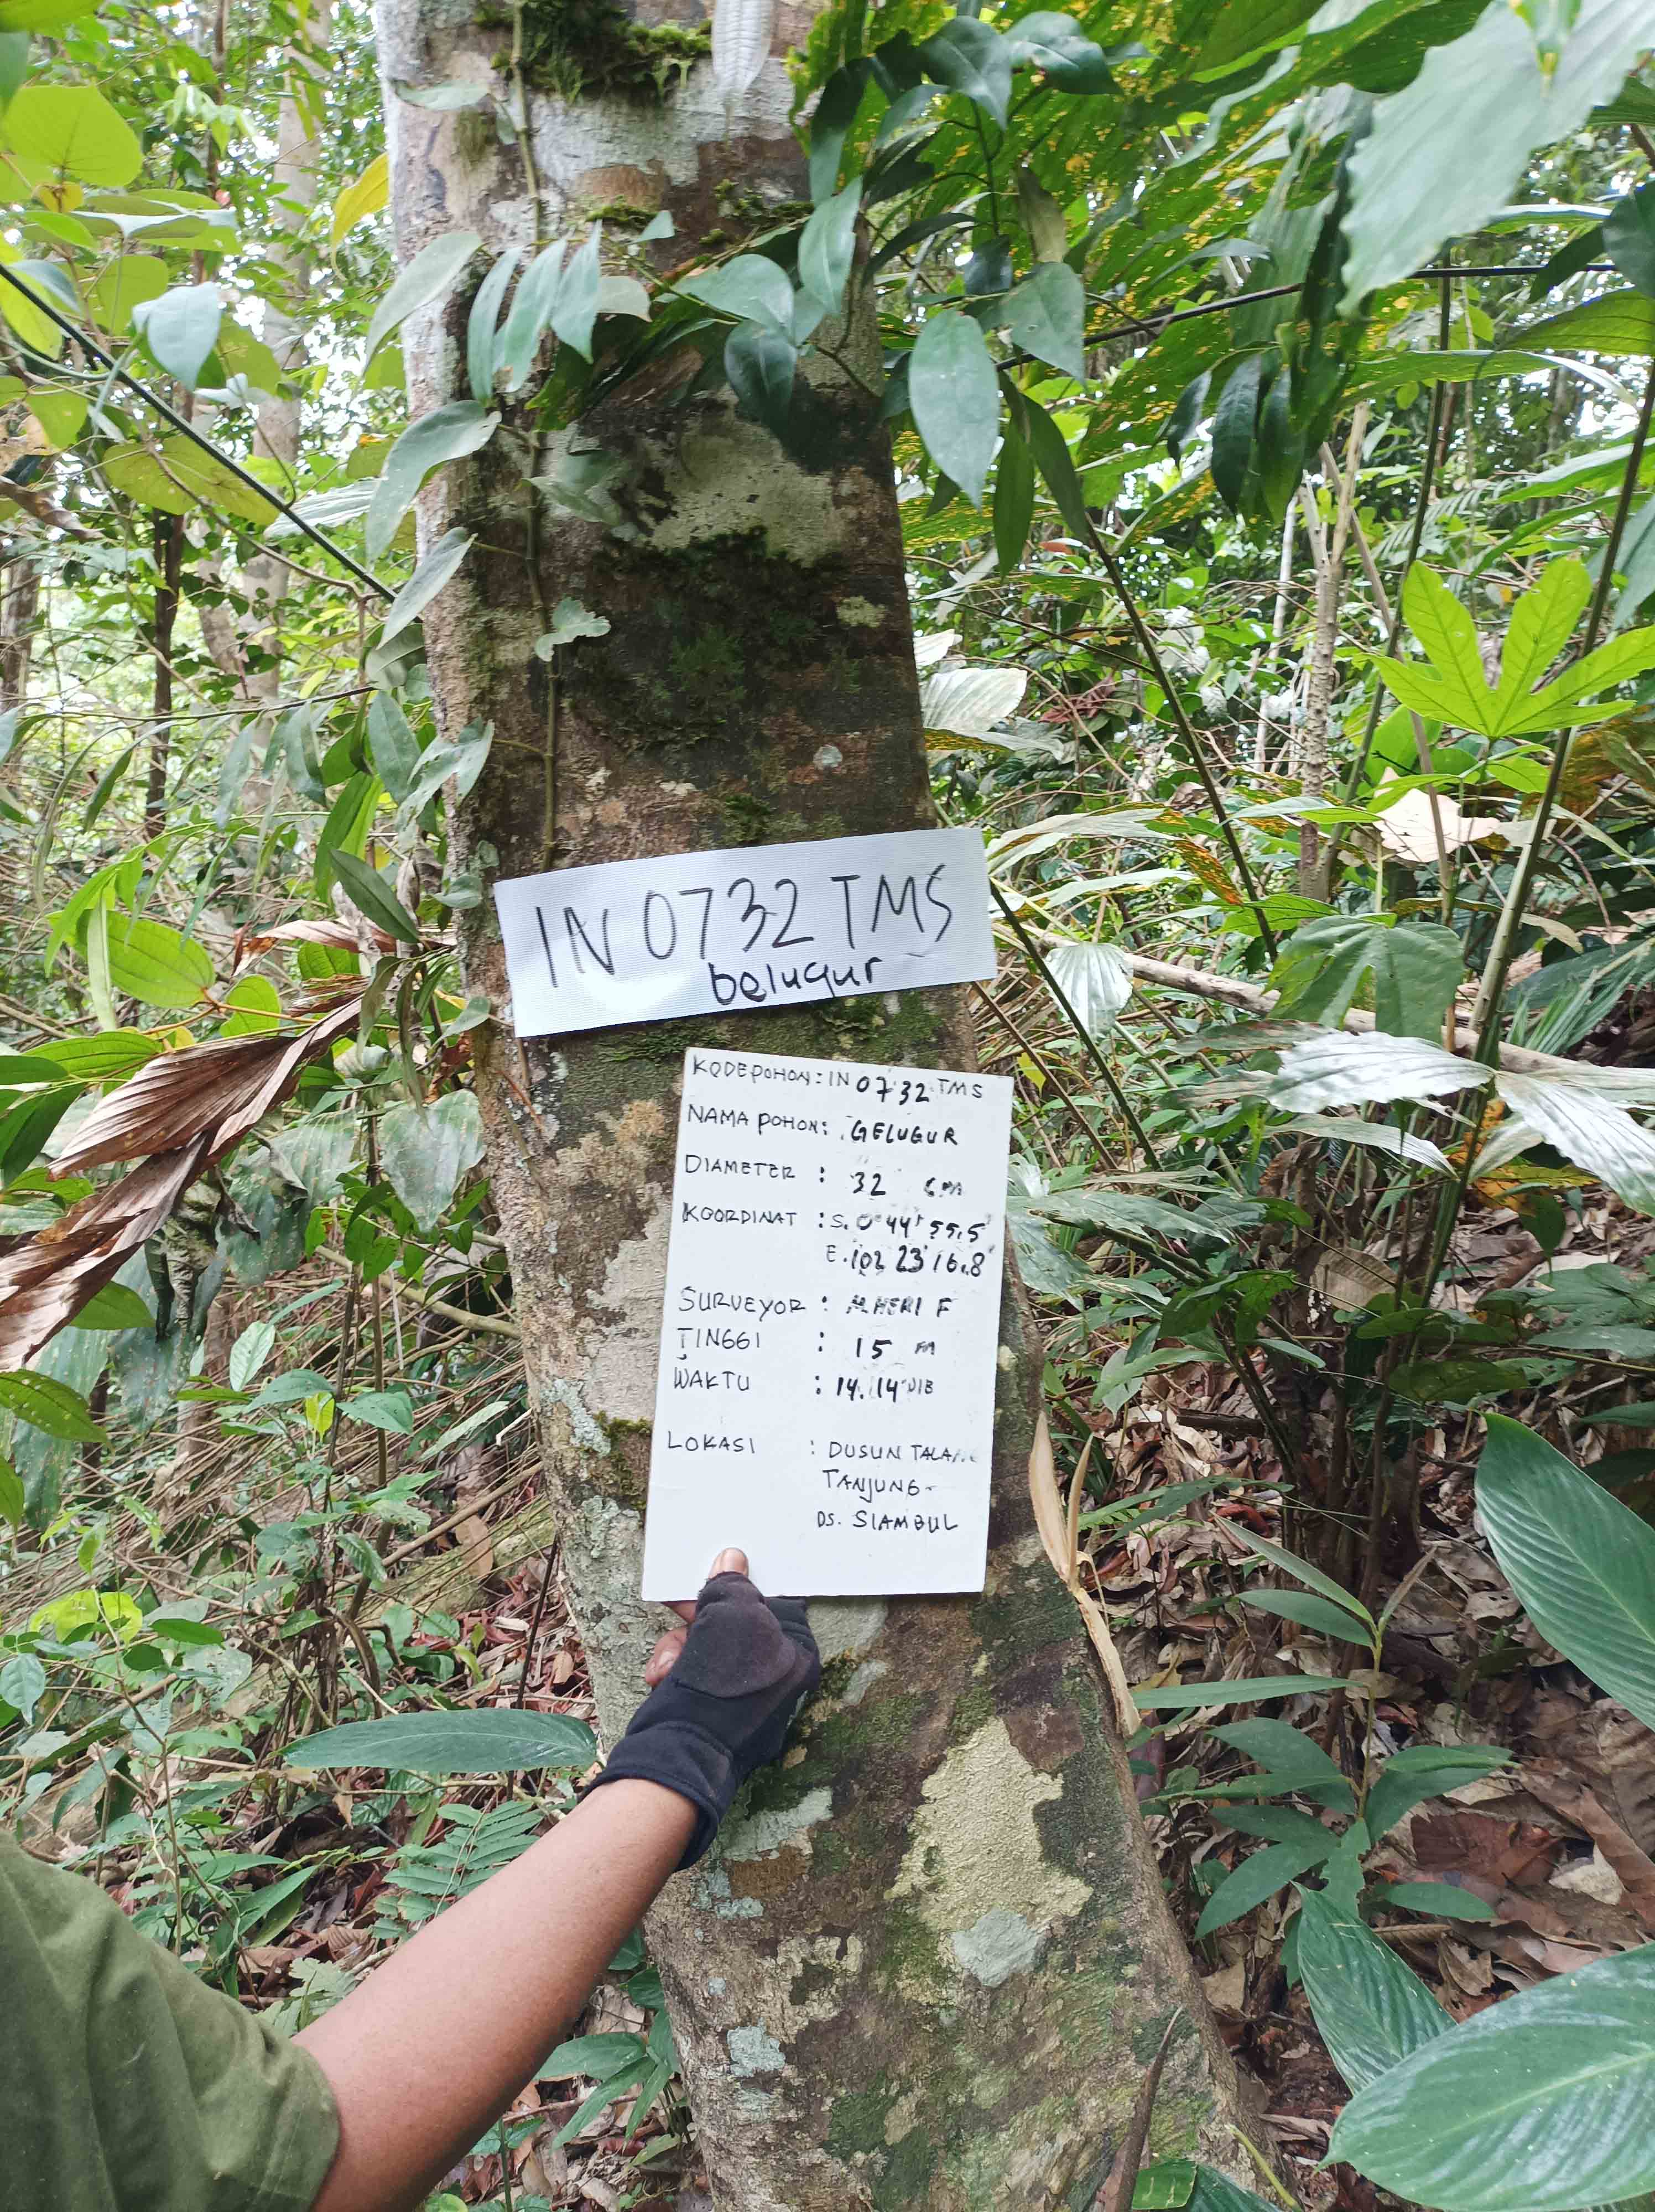 IN 0732 TMS
belugur
KODE POHON : IN 0732 TMS
NAMA POHON : GELUGUR
DIAMETER : 32 CM
KOORDINAT : S. 0° 44' 55,5"
E. 102 23' 16.8"
SURVEYOR : M HERI F
TINGGI : 15 M
WAKTU : 14.14 WIB
LOKASI : DUSUN TALANG
TANJUNG -
DS. SIAMBUL